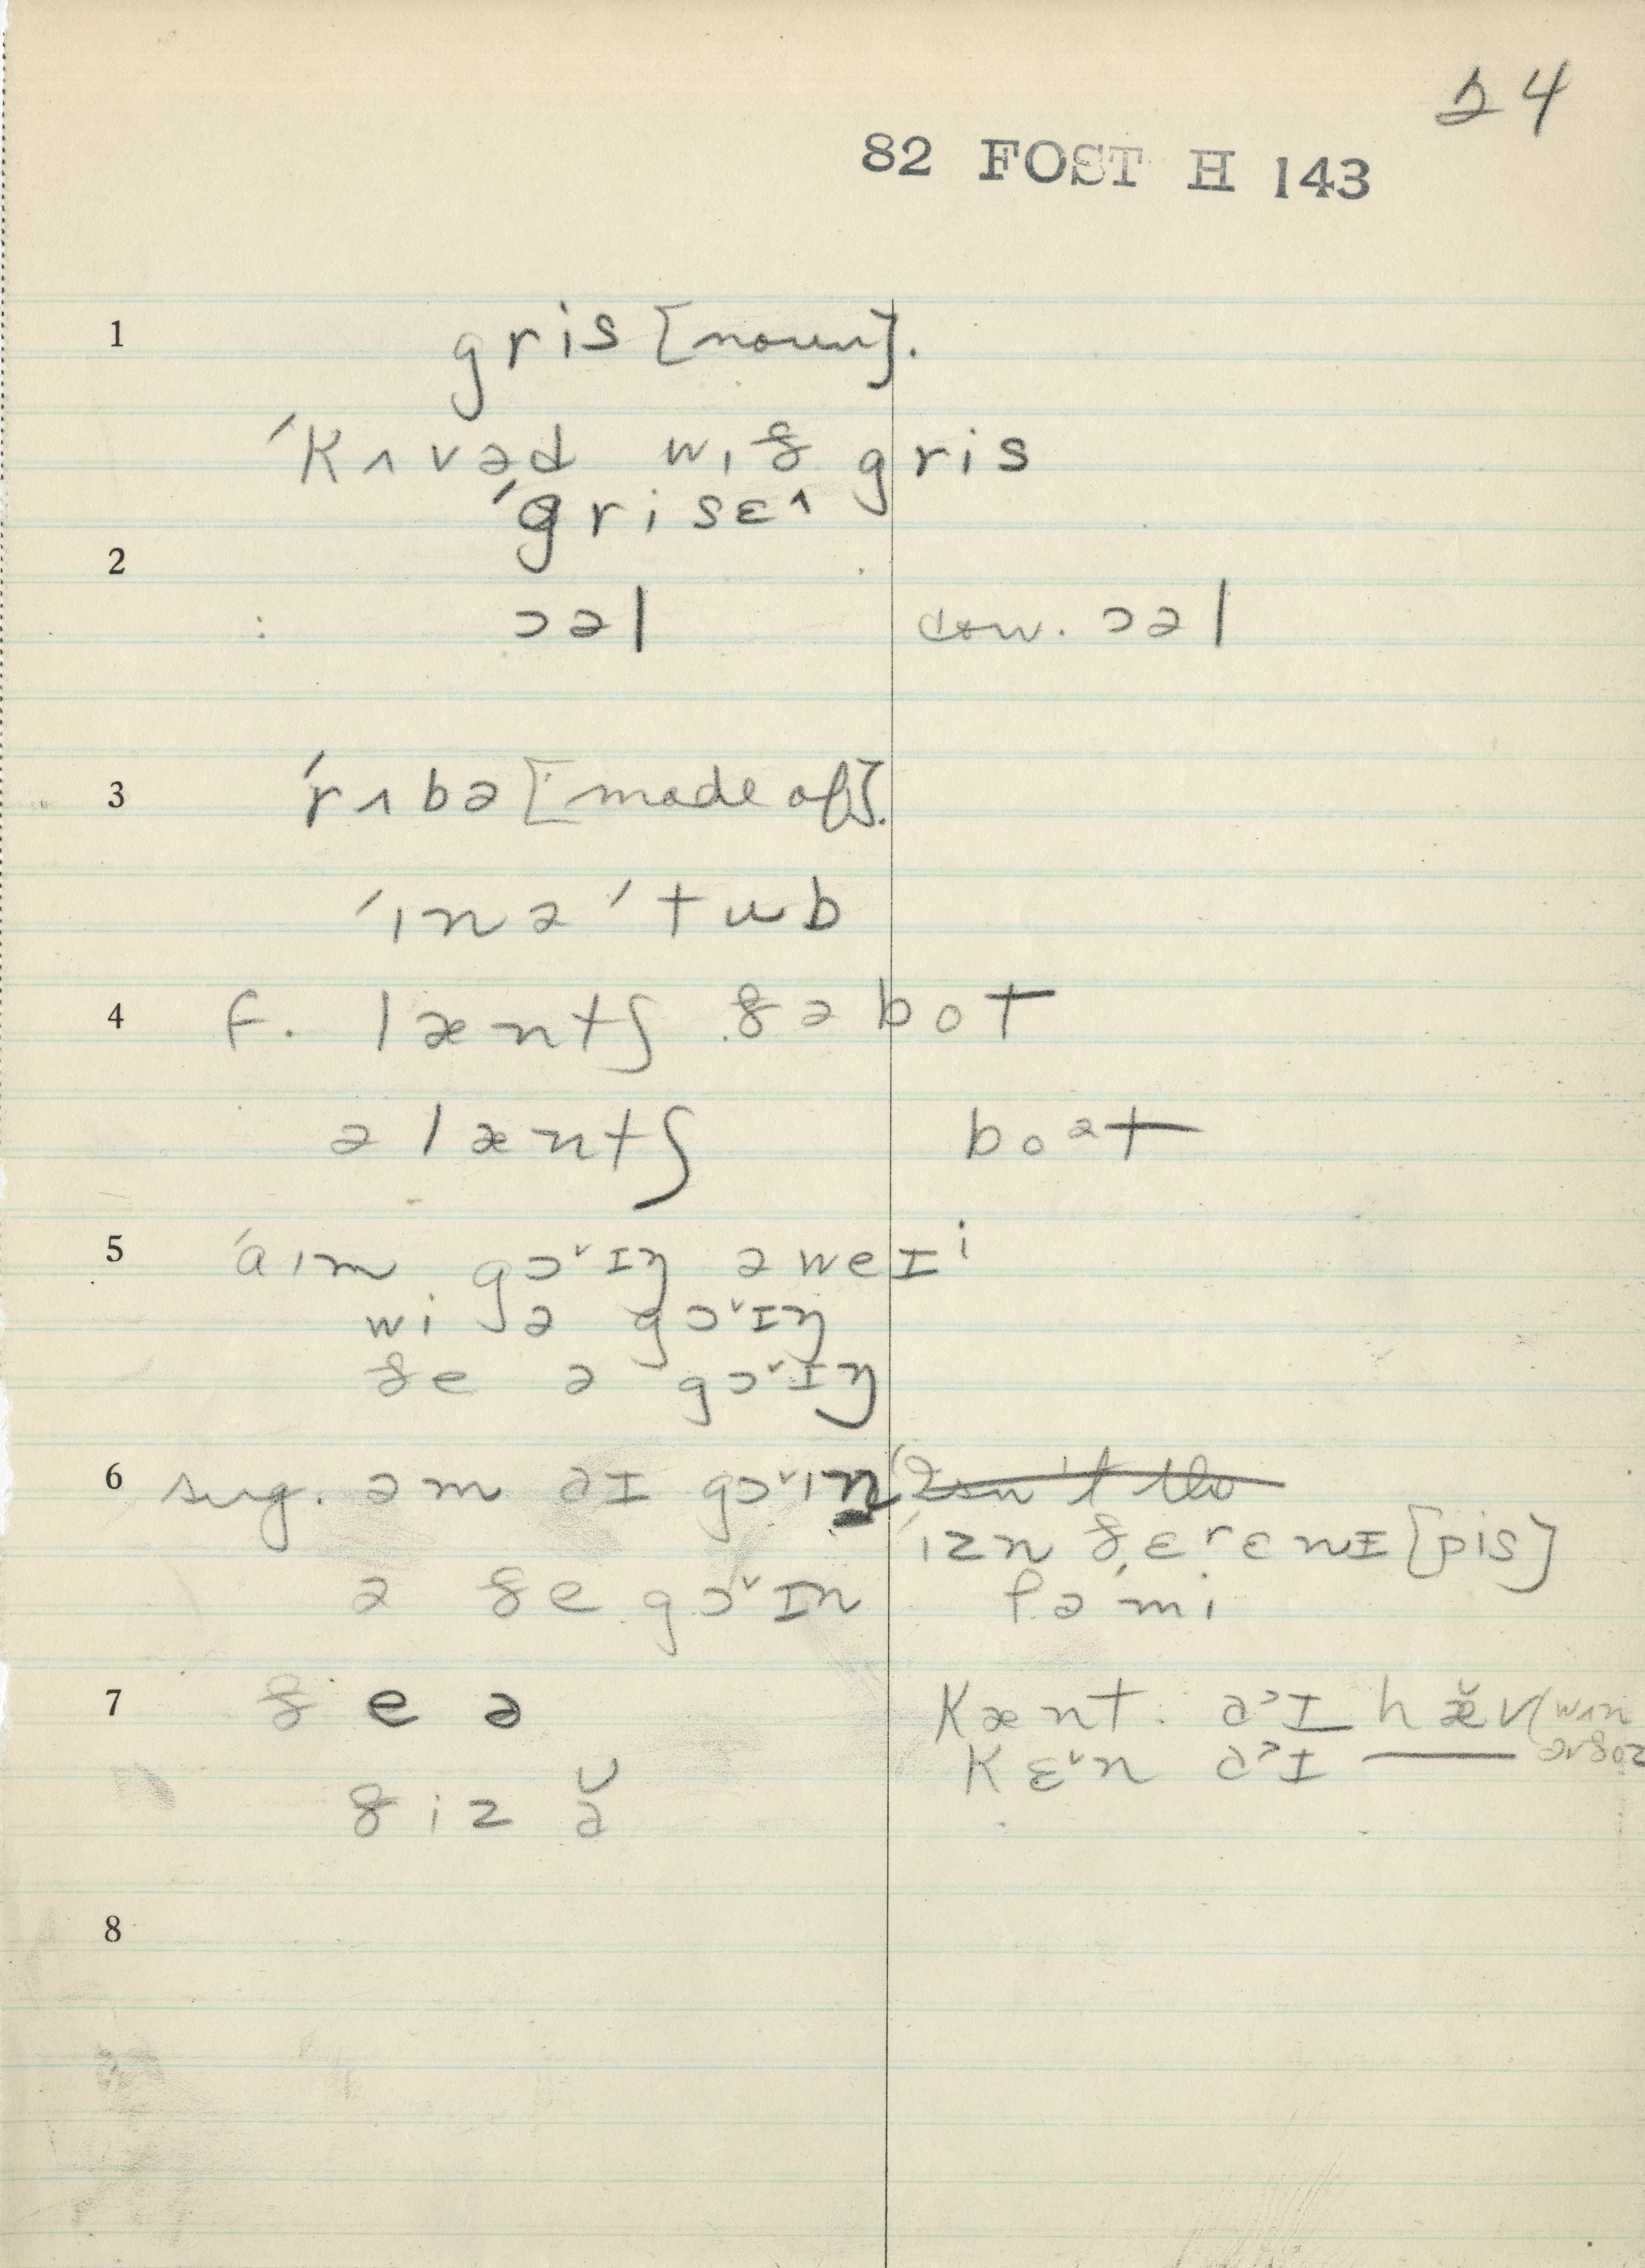 24
82 FOST H 143
1 gris [noun].
ˈkʌvəd wɪð gris
ˈgrisɛ˄
2
ɔəl con. ɔəl
3 ˈrʌbə [made of].
ˈɪnəˈtub
4 f. læntʃ ðə bot
ə læntʃ boᵊt
5 ˈaɪm gɔ˅ɪŋ əweɪⁱ
wi ə gɔ˅ɪŋ
ðe ə gɔ˅ɪŋ
6 sug. əm əɪ gɔ˅ɪn Isn't the
ˈɪzn ðɛrɛnɪ [pis]
ə ðe gɔ˅ɪn fəˈmi
7 ðe ə kænt əᵓɪ hæ̆v (wʌn
kɛ˅n əᵓɪ — əvðoz
ðiz ə̆
8